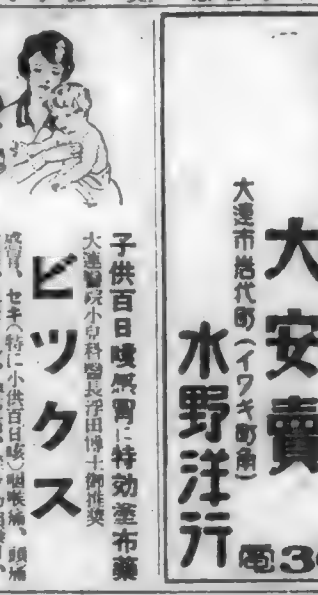 大安賣
大連市岩代町(イワキ町角)
水野洋行
電3
子供百日咳感冒に特効塗布藥
大連醫院小兒科醫長浮田博士御推奬
ビックス
感冒、セキ(特に小供百日咳)咽喉痛、頭痛